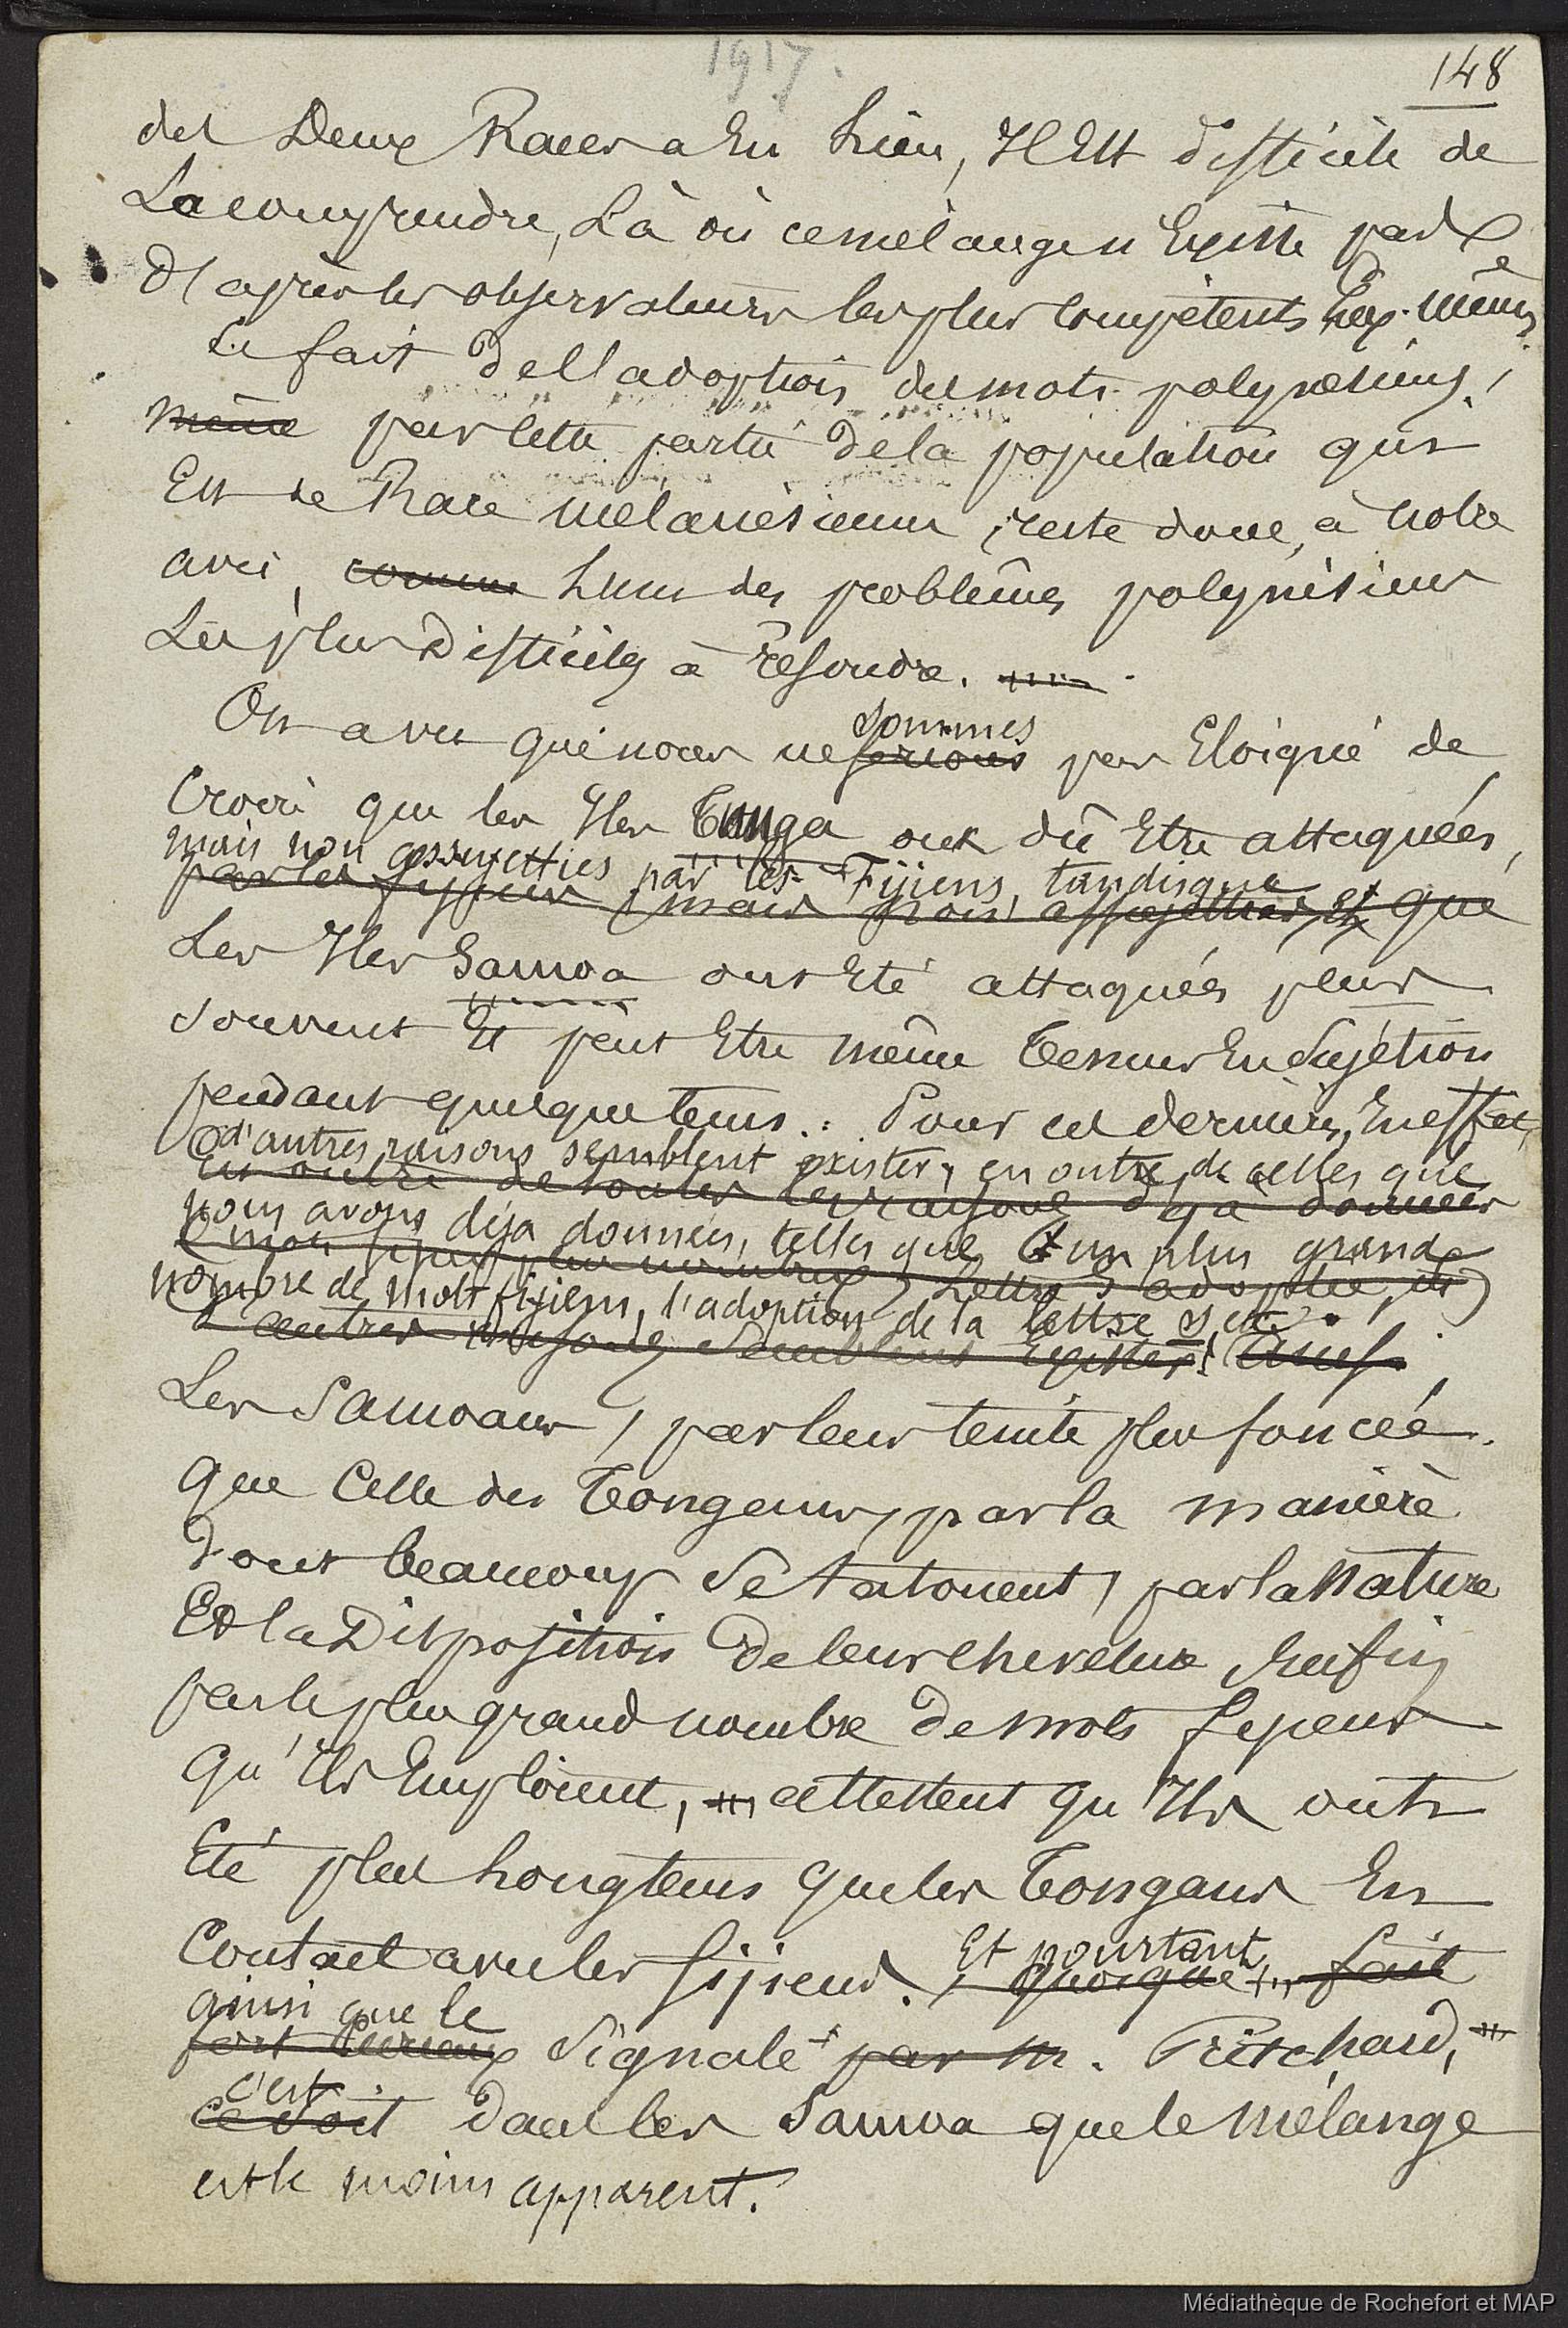 1917.
148
des Deux Races a Eu Lieu, Il Est difficile de
La comprendre, Là où ce mélange n'Existe pas
D'après les observateurs les plus compétents Eux-mêmes.
Le fait de l'adoption des mots polynésiens,
même par cette partie de la population qui
Est de Race mélanésienne, reste donc, à notre
avis, comme L'un des problèmes polynésiens
Les plus Difficiles à Résoudre.
sommes
On a vu que nous ne serions pas Eloigné de
Croire que les Iles Tunga ont dû Etre attaquées,
mais non assujetties par les Fijiens, tandisque
par les fijiens, mais non assujetties, Et que
Les Iles Samoa ont Eté attaquées plus
souvent Et peut Etre même Tenues En Sujétion
pendant quelque tems. Pour ces dernières, En effet,
d'autres raisons semblent exister, en outre de celles que
En outre de toutes les raisons déja données
nous avons déja données, telles que un plus grand
mots fijiens plus nombreux, Lettre S adoptée, etc
nombre de mots fijiens, l'adoption de la lettre s, etc.
d'autres raisons semblent Exister. Ainsi
Les Samoans, par leur teinte plus foncée
que Celle des Tongans, par la manière
Dont beaucoup se tatouent, par la Nature
Et la Disposition de leur chevelure, Enfin
par le plus grand nombre de mots fijiens
qu'Ils Emploient, attestent qu'Ils ont
Eté plus Longtems que les Tongans En
Et pourtant,
Contact avec les fijiens. quoique fait
ainsi que le
fort curieux Signale par M. Pritchard,
c'est
ce soit dans les Samoa que le mélange
est le moins apparent.
Médiathèque de Rochefort et MAP